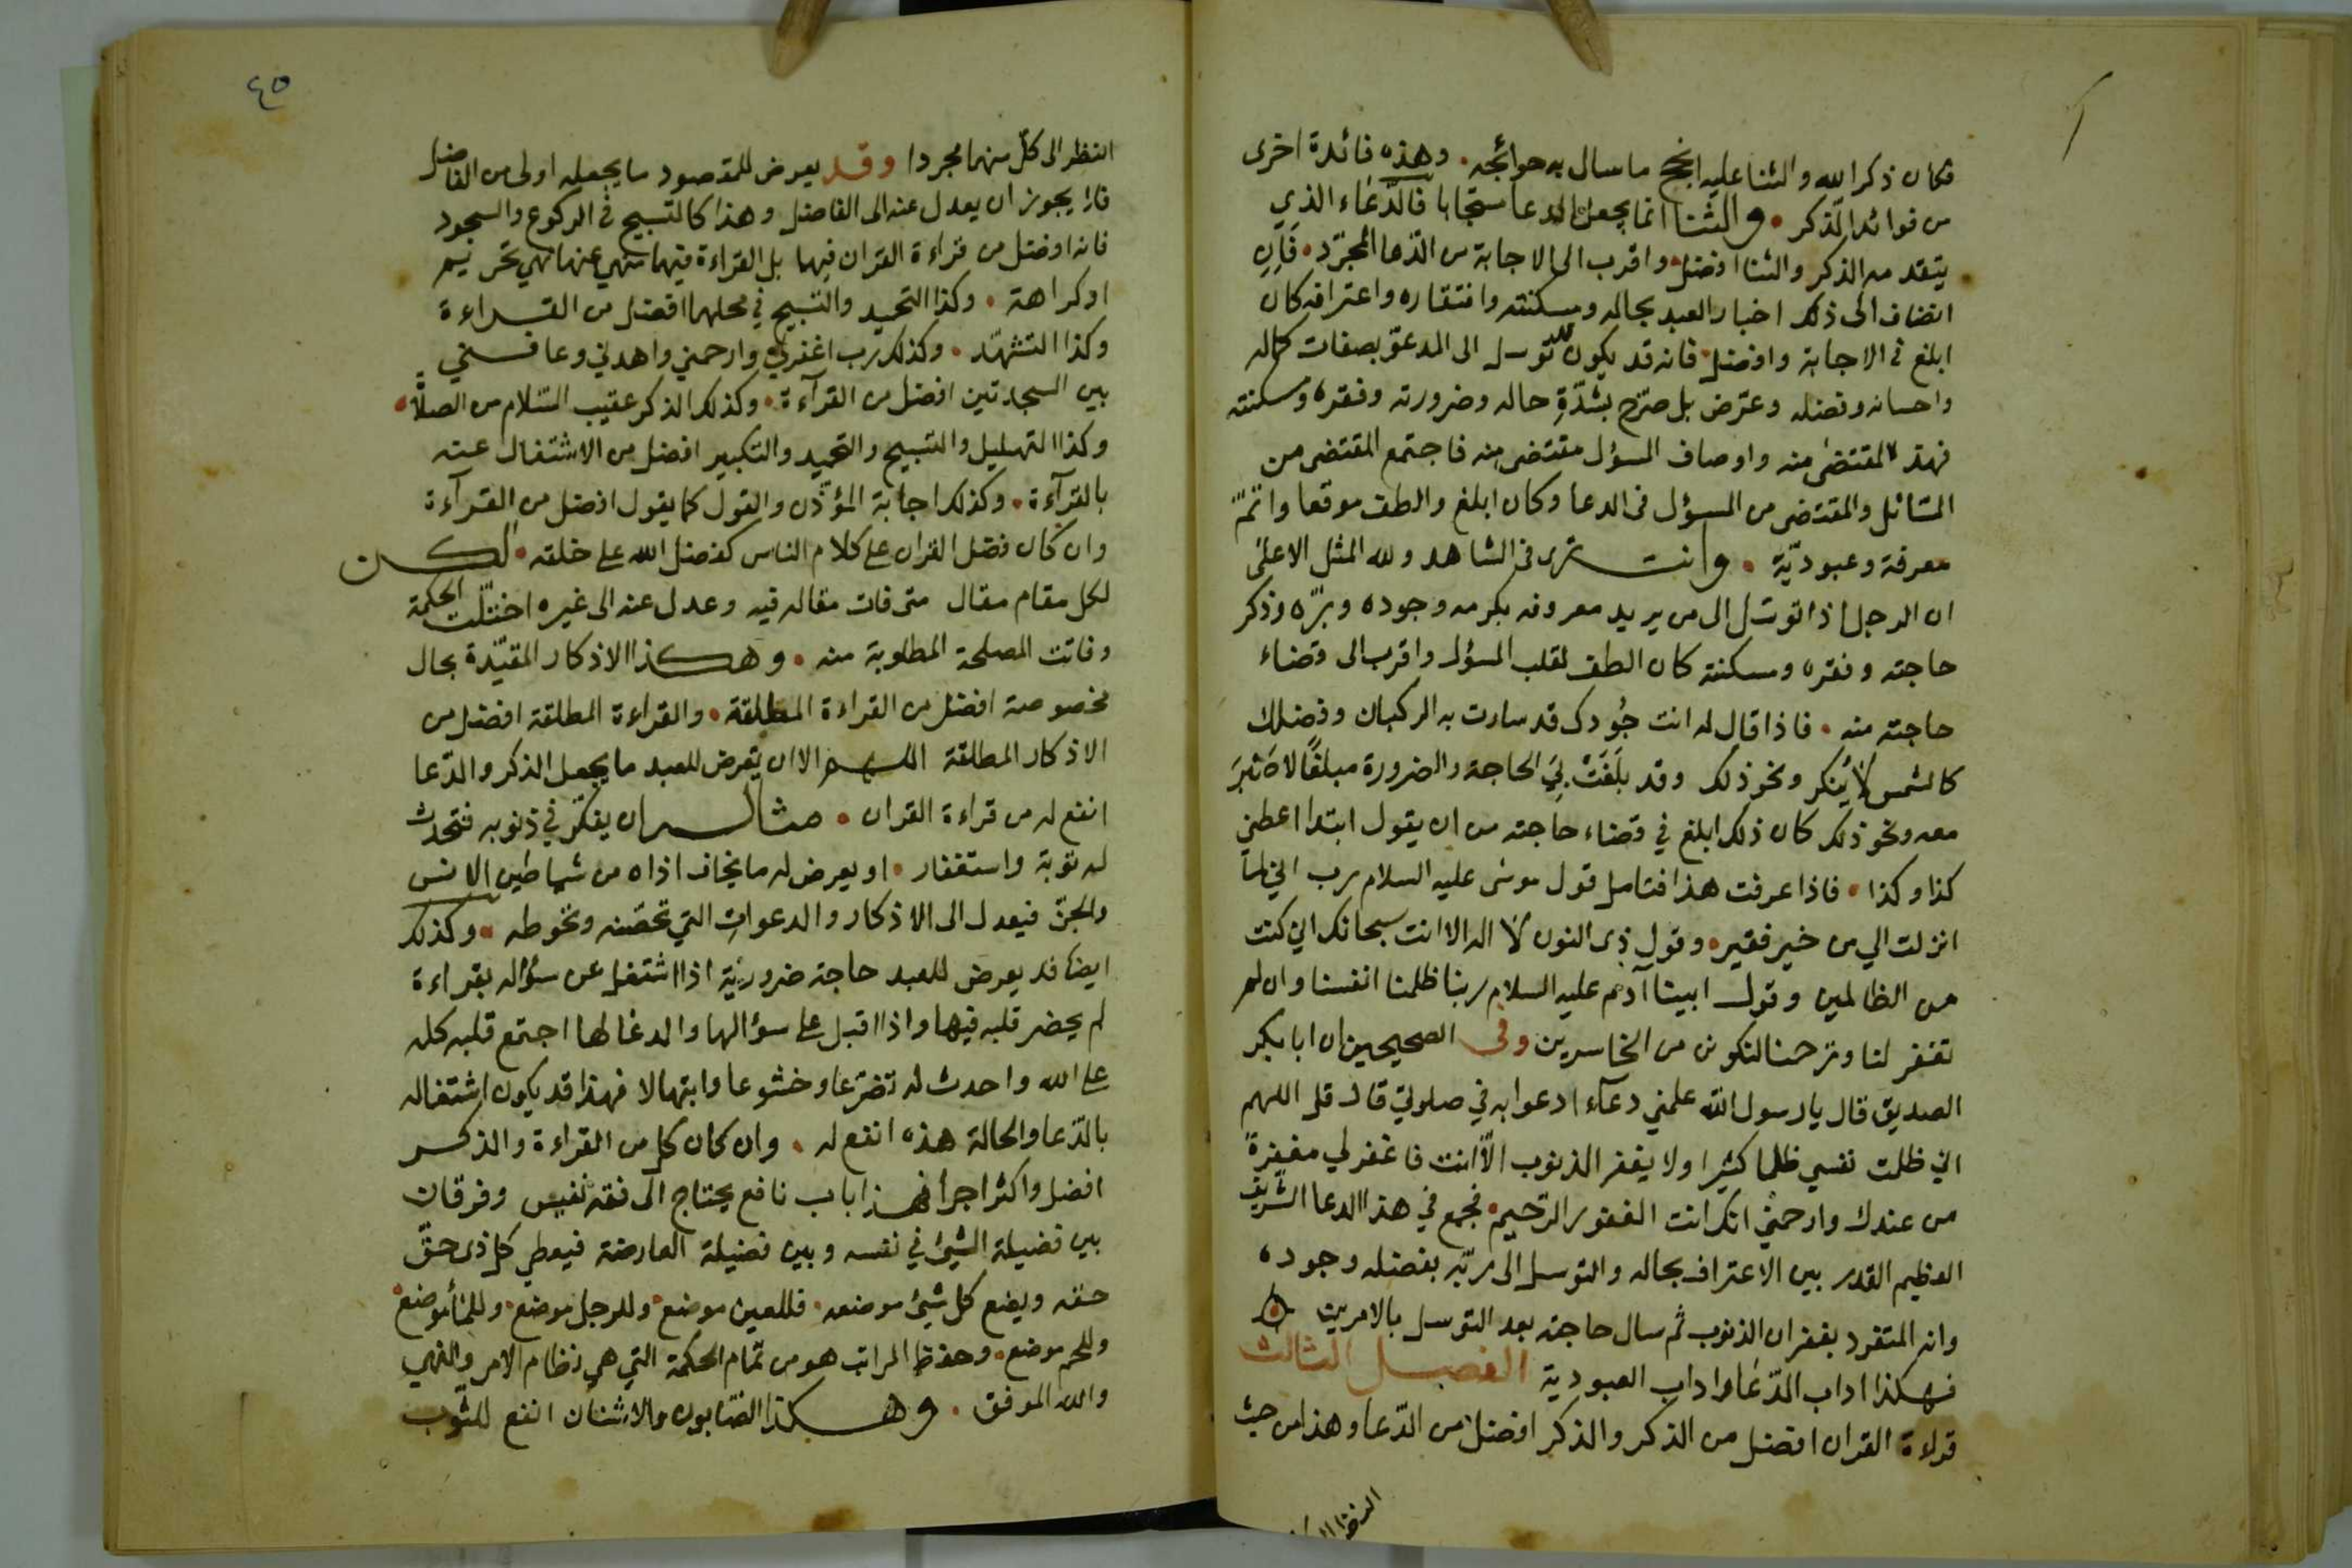 فكان ذكر الله والثنا عليه انجح ما سال به حوائجه. وهذه فائدة اخرى
من فوائد الذكر. والثنا انما يجعل الدعا مستجابا فالدّعاء الذي
يتقدمه الذكر والثنا افضل. واقرب الى الاجابة من الدّعا المجرّد. فَاِنِ
انضاف الى ذلك اخبار العبد بحاله ومسكنته وافتقاره واعترافه كان
ابلغ في الاجابة وافضل. فانه قد يكون توسل الى المدعوّ بصفات كماله
واحسانه وفضله وعرّض بل صرّح بشدّةِ حاله وضرورته وفقره ومسكنته
فهذا المقتضى منه واوصاف المسؤل مقتضى منه فاجتمع المقتضى من
السّائل والمقتضى من المسؤل فى الدعا وكان ابلغ والطف موقعا واتمّ
معرفة وعبوديّة. وانت ترى فى الشاهد ولله المثل الاعلى
ان الرجل اذا توسّل الى من يريد معروفه بكرمه وجوده وبرّه وذكر
حاجته وفقره ومسكنته كان الطف لقلب المسؤل واقرب الى قضاء
حاجته منه. فاذا قال له انت جُودك قد سارت به الركبان وفضلك
كالشمس لا يُنكر ونحو ذلك وقد بلَغَتْ بيَ الحاجة والضرورة مبلغًا لا صَبْرَ
معه ونحو ذلك كان ذلك ابلغ في قضاء حاجته من ان يقول ابتدا اعطني
كذا وكذا. فاذا عرفت هذا فتامل قول موسى عليه السلام رب اني لما
انزلت الي من خير فقير. وقول ذى النون لا اله الا انت سبحانك اني كنت
من الظالمين وقول ابينا آدم عليه السلام ربنا ظلمنا انفسنا وان لم
تغفر لنا وترحمنا لنكونن من الخاسرين وفى الصحيحين ان ابا بكر
الصديق قال يا رسول الله علمني دعآء ادعوا به في صلوتي قال قل اللهم
اني ظلمت نفسي ظلما كثيرا ولا يغفر الذنوب الّا انت فاغفر لي مغفرةً
من عندك وارحمني انك انت الغفور الرّحيم. فجمع في هذا الدعا الشّريف
العظيم القدر بين الاعتراف بحاله والتوسل الى ربّه بفضله وجوده
وانه المتفرد بغفران الذنوب ثم سال حاجته بعد التوسل بالامرين
فهكذا اداب الدّعا واداب العبودية الفصل الثالث
قراءة القران افضل من الذكر والذكر افضل من الدّعا وهذا من حيث
٤٥
النظر الى كلّ منهما مجردا وقد يعرض للمقصود ما يجعله اولى من الفاضل
فلا يجوز ان يعدل عنه الى الفاضل وهذا كالتسبيح في الركوع والسجود
فانه افضل من قراءة القران فيها بل القراءة فيها منهى عنها نهي تحريم
او كراهة. وكذا التحميد والتسبيح في محلهما افضل من القراءة
وكذا التشهّد. وكذلك رب اغفرلي وارحمني واهدني وعافني
بين السجدتين افضل من القرآءة. وكذلك الذكر عقيب السّلام من الصلاة.
وكذا التهليل والتسبيح والتحميد والتكبير افضل من الاشتغال عنه
بالقرآءة. وكذلك اجابة المؤذّن والقول كما يقول افضل من القرآءة
وان كان فضل القران على كلام الناس كفضل الله على خلقه. لكن
لكل مقام مقال متى فات مقاله فيه وعدل عنه الى غيره اختلّت الحكمة
وفاتت المصلحة المطلوبة منه. وهكذا الاذكار المقيّدة بحال
مخصوصة افضل من القراءة المطلقة. والقراءة المطلقة افضل من
الاذكار المطلقة اللهم الا ان يعرض للعبد ما يجعل الذكر والدّعا
انفع له من قراءة القران. مثاله ان يفكّر في ذنوبه فتحدث
له توبة واستغفار. او يعرض له ما يخاف اذاه من شياطين الانس
والجنّ فيعدل الى الاذكار والدعوات التي تحصّنه وتحوطه. وكذلك
ايضا قد يعرض للعبد حاجة ضروريّة اذا اشتغل عن سؤاله بقراءة
لم يحضر قلبه فيها واذا اقبل على سؤالها والدعا لها اجتمع قلبه كله
على الله واحدث له تضرّعا وخشوعا وابتهالا فهذا قد يكون اشتغاله
بالدّعا والحالة هذه انفع له. وان كان كل من القراءة والذكر
افضل واكثر اجرا فهذا باب نافع يحتاج الى فقه نفيس وفرقان
بين فضيلة الشيئ في نفسه وبين فضيلة العارضة فيعطي كل ذى حقّ
حقه ويضع كل شيئ موضعه. فللعين موضع وللرجل موضع. وللمأ موضع
وللحم موضع. وحفظ المراتب هو من تمام الحكمة التي هي نظام الامر والنهي
والله الموفق. وهكذا الصّابون والاشنان انفع للثّوب